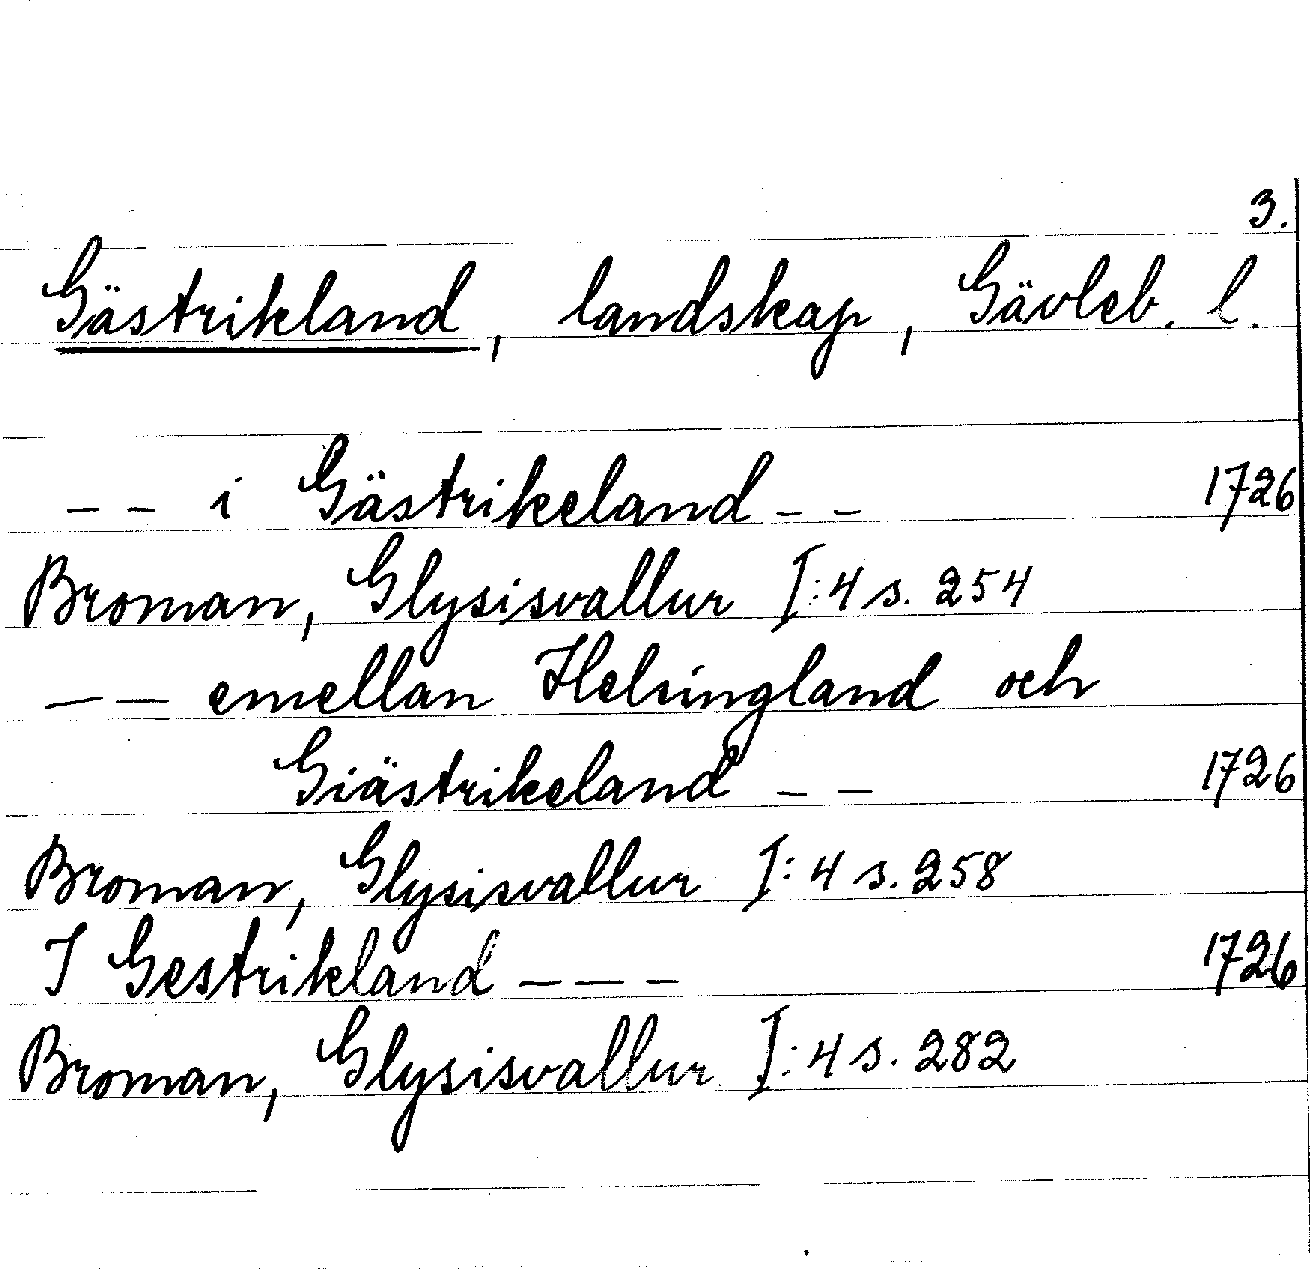 3.
Gästrikland, landskap, Gävleb. l.
-- i Gästrikeland -- 1726
Broman, Glysisvallur I:4 s. 254
-- emellan Helsingland och
Giästrikeland -- 1726
Broman, Glysisvallur I:4 s. 258
I Gestrikland --- 1726
Broman, Glysisvallur I:4 s. 282